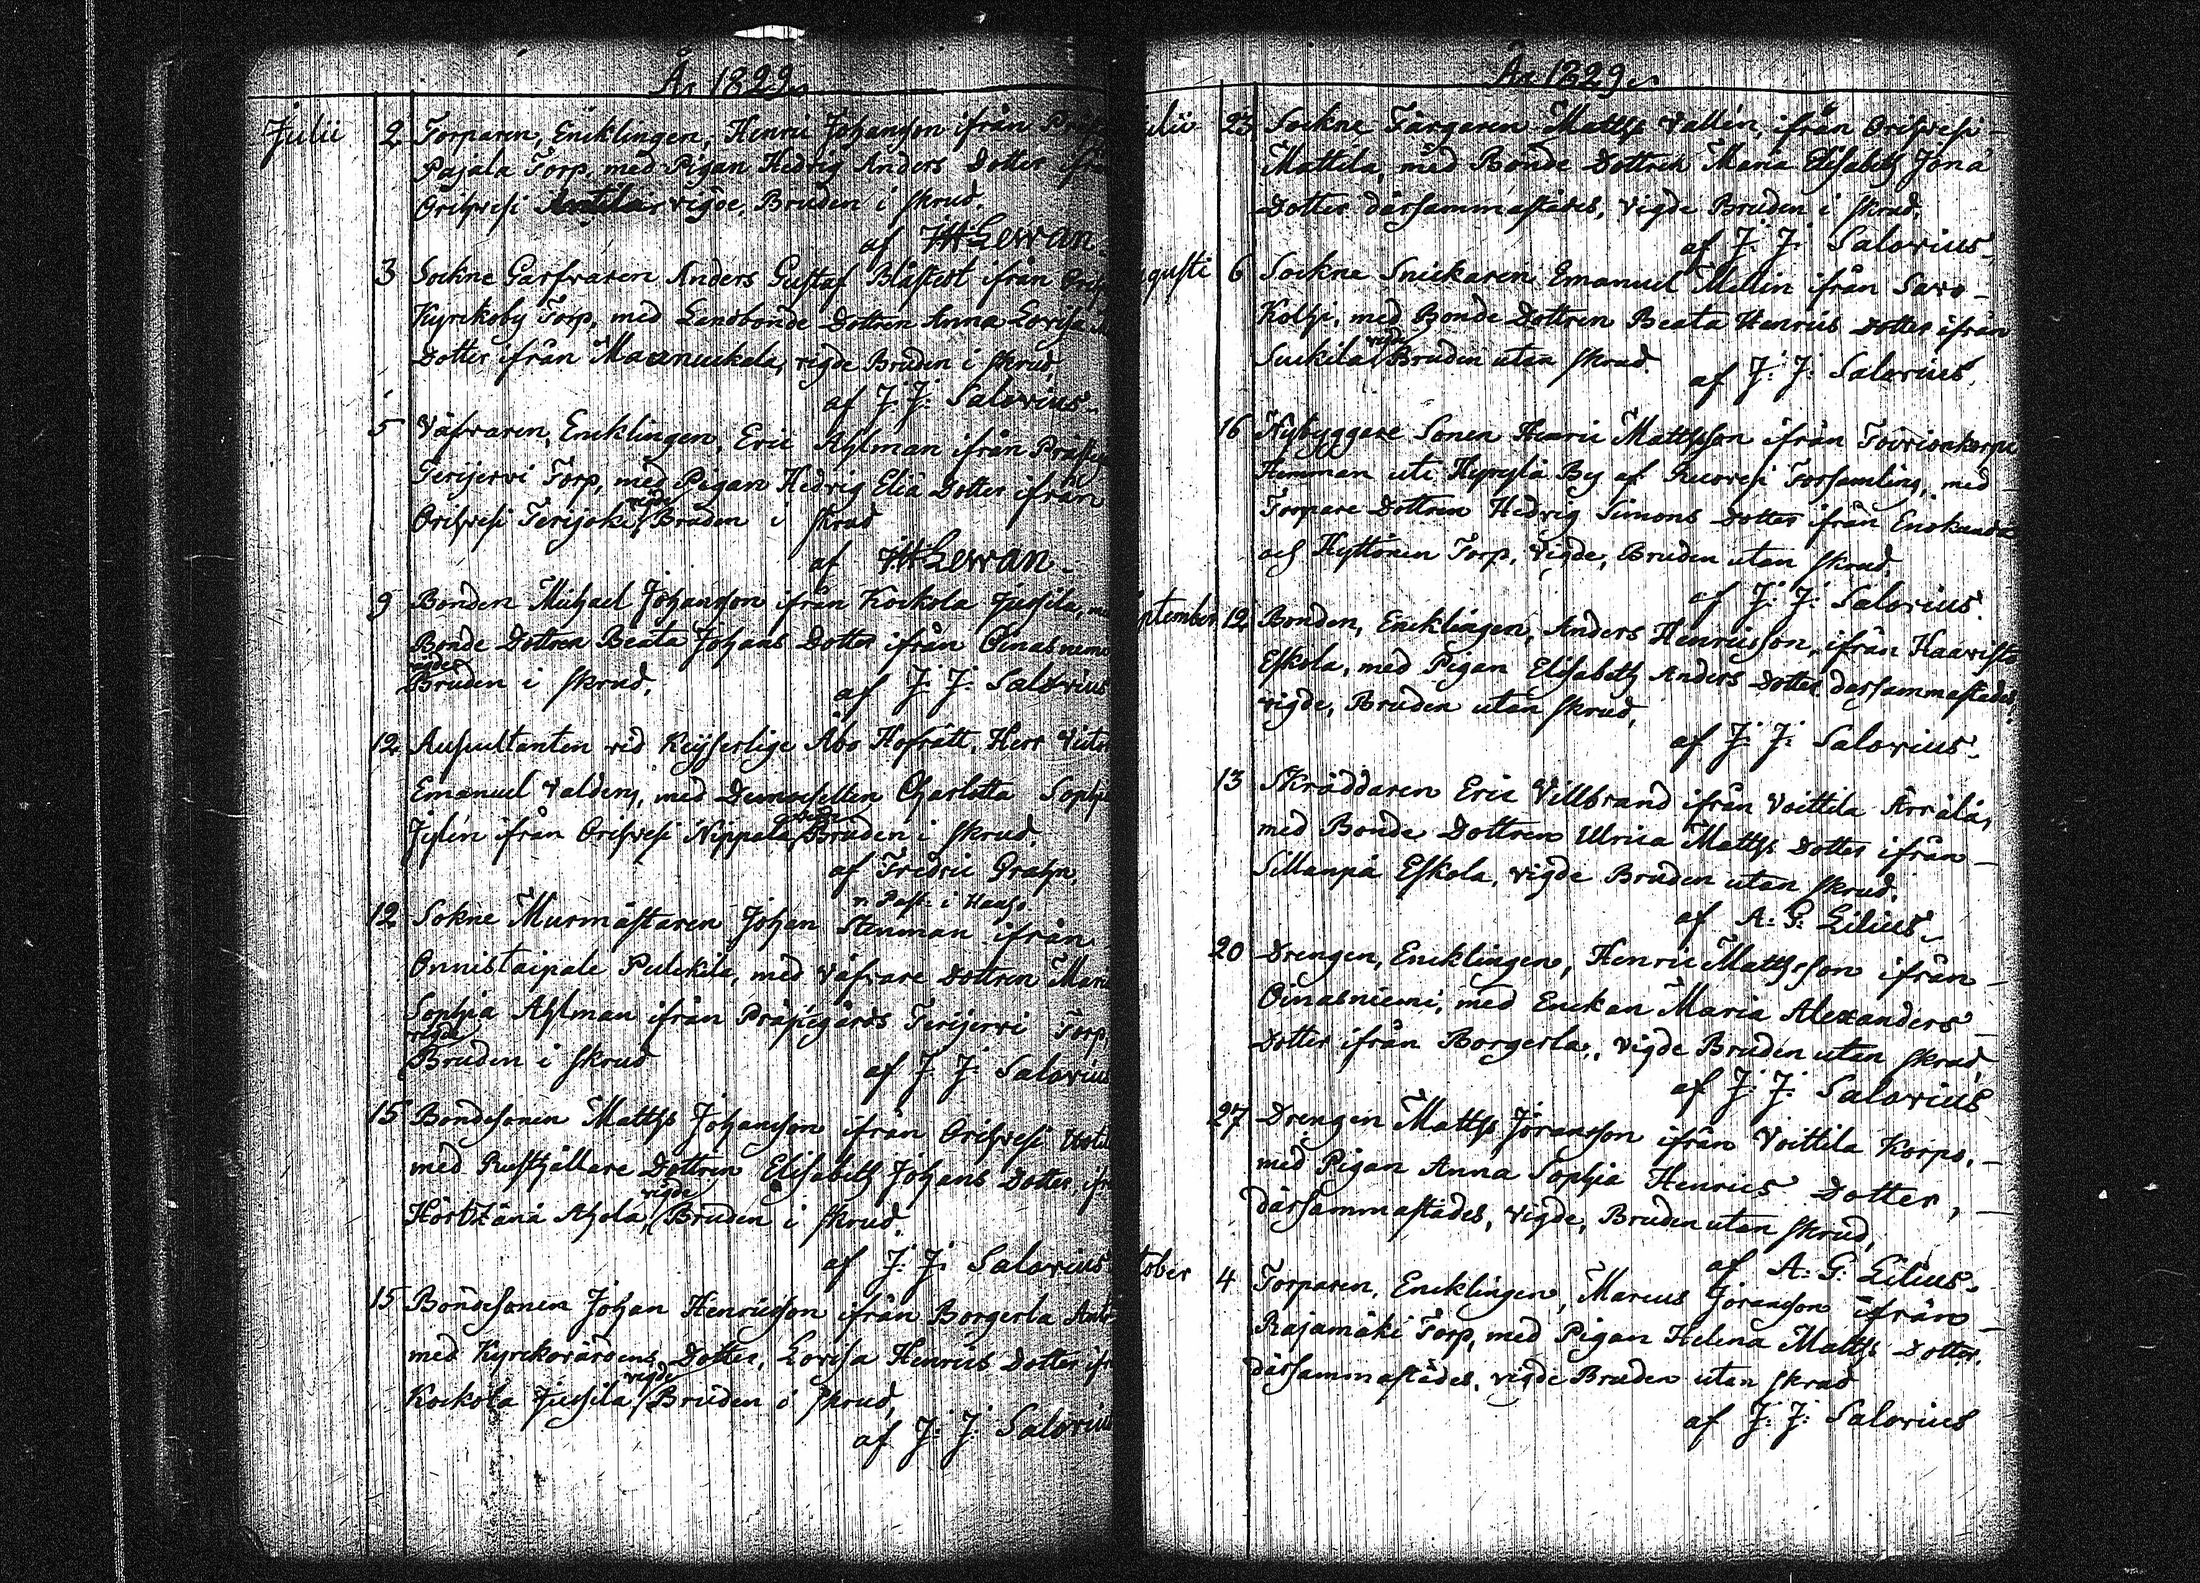 År 1829.
Julii 2 Torparen, Enklingen, Henric Johansson ifrån
Pajala Torp, med Pigan Hedvig Anders Dotter ifrån
Orihvesi vigde, Bruden i skrud.
af JHLewan.
3 Sockne Garfvaren Anders Gustaf Blåfjeld ifrån
Kyrkoby Torp, med Landbonde Dottren Anna Lovisa
Dotter ifrån vigde Bruden i skrud,
af J: J: Salovius.
5 Väfvaren, Enklingen, Eric Ahlman ifrån
Terijervi Torp, med Pigan Hedvig Elia Dotter ifrån
Orihvesi Terijoki, vigde Bruden i skrud
af JHLewan.
9 Bonden Michael Johansson ifrån Kockola Jussila,
Bonde Dottren Beata Johans Dotter ifrån
vigde Bruden i skrud,
af J: J: Salovius
12 Auscultanten vid Keijserlige Åbo Hofrätt, Herr
Emanuel Valdens, med Demoisellen Charlotta Sophia
ifrån Orihvesi Nippala, vigde Bruden i skrud,
af Fredric Grahn,
v: Past: i
12 Sokne Murmästaren Johan Stenman ifrån
Onnistaipale Pulckila, med Väfvare Dottren
Sophia Ahlman ifrån Prästegårds Terijervi Torp,
vigde Bruden i skrud
af J: J: Salovius
15 Bondesonen Matths Johansson ifrån Orihvesi
med Rusthållare Dottren Elisabeth Johans Dotter,
Hörtzänä Ahola, vigde Bruden i skrud.
af J: J: Salovius
15 Bondesonen Johan Henricsson ifrån Borgerla
med Kyrkovärdens Dotter, Lovisa Henrics Dotter
Kockola Jussila, vigde Bruden i skrud,
af J: J: Salovius
År 1829.
23 Sockne Färgaren Matths Vallén, ifrån Orihvesi
Mattila, med Bonde Dottren Maria Elisabeth Jona
Dotter därsammastädes, vigde Bruden i skrud,
af J: J: Salovius.
6 Sockne Snickaren Emanuel Mellin ifrån Savo
Kolhi, med Bonde Dottren Beata Henrics Dotter ifrån
Suckila, vigde Bruden utan skrud.
af J: J: Salovius.
16 Nybyggare Sonen Henric Mattsson ifrån
Hemman uti Hyrylä By af Ruovesi Församling, med
Torpare Dottren Hedvig Simons Dotter ifrån
och Hyttönen Torp, vigde, Bruden utan skrud,
af J: J: Salovius.
12 Bonden, Enklingen, Anders Henricsson, ifrån Haavisto
Eskola, med Pigan Elisabeth Anders Dotter därsammastädes,
vigde, Bruden utan skrud,
af J: J: Salovius.
13 Skräddaren Eric Villbrand ifrån Voittila Ärrälä,
med Bonde Dottren Ulrica Matths Dotter ifrån
Sillanpä Eskola, vigde Bruden utan skrud.
af A: G: Lilius.
20 Drengen, Enklingen, Henric Mattsson ifrån
Oinasniemi, med Enkan Maria Alexanders
Dotter ifrån Borgerla, vigde Bruden utan skrud,
af J: J: Salovius
27 Drengen Matths Jöransson ifrån Voittila Korpo,
med Pigan Anna Sophia Henrics Dotter,
därsammastädes, vigde, Bruden utan skrud,
af A: G: Lilius.
4 Torparen, Enklingen, Marcus Jöransson ifrån
Rajamäki Torp, med Pigan Helena Matths Dotter,
därsammastädes, vigde Bruden utan skrud
af J: J: Salovius